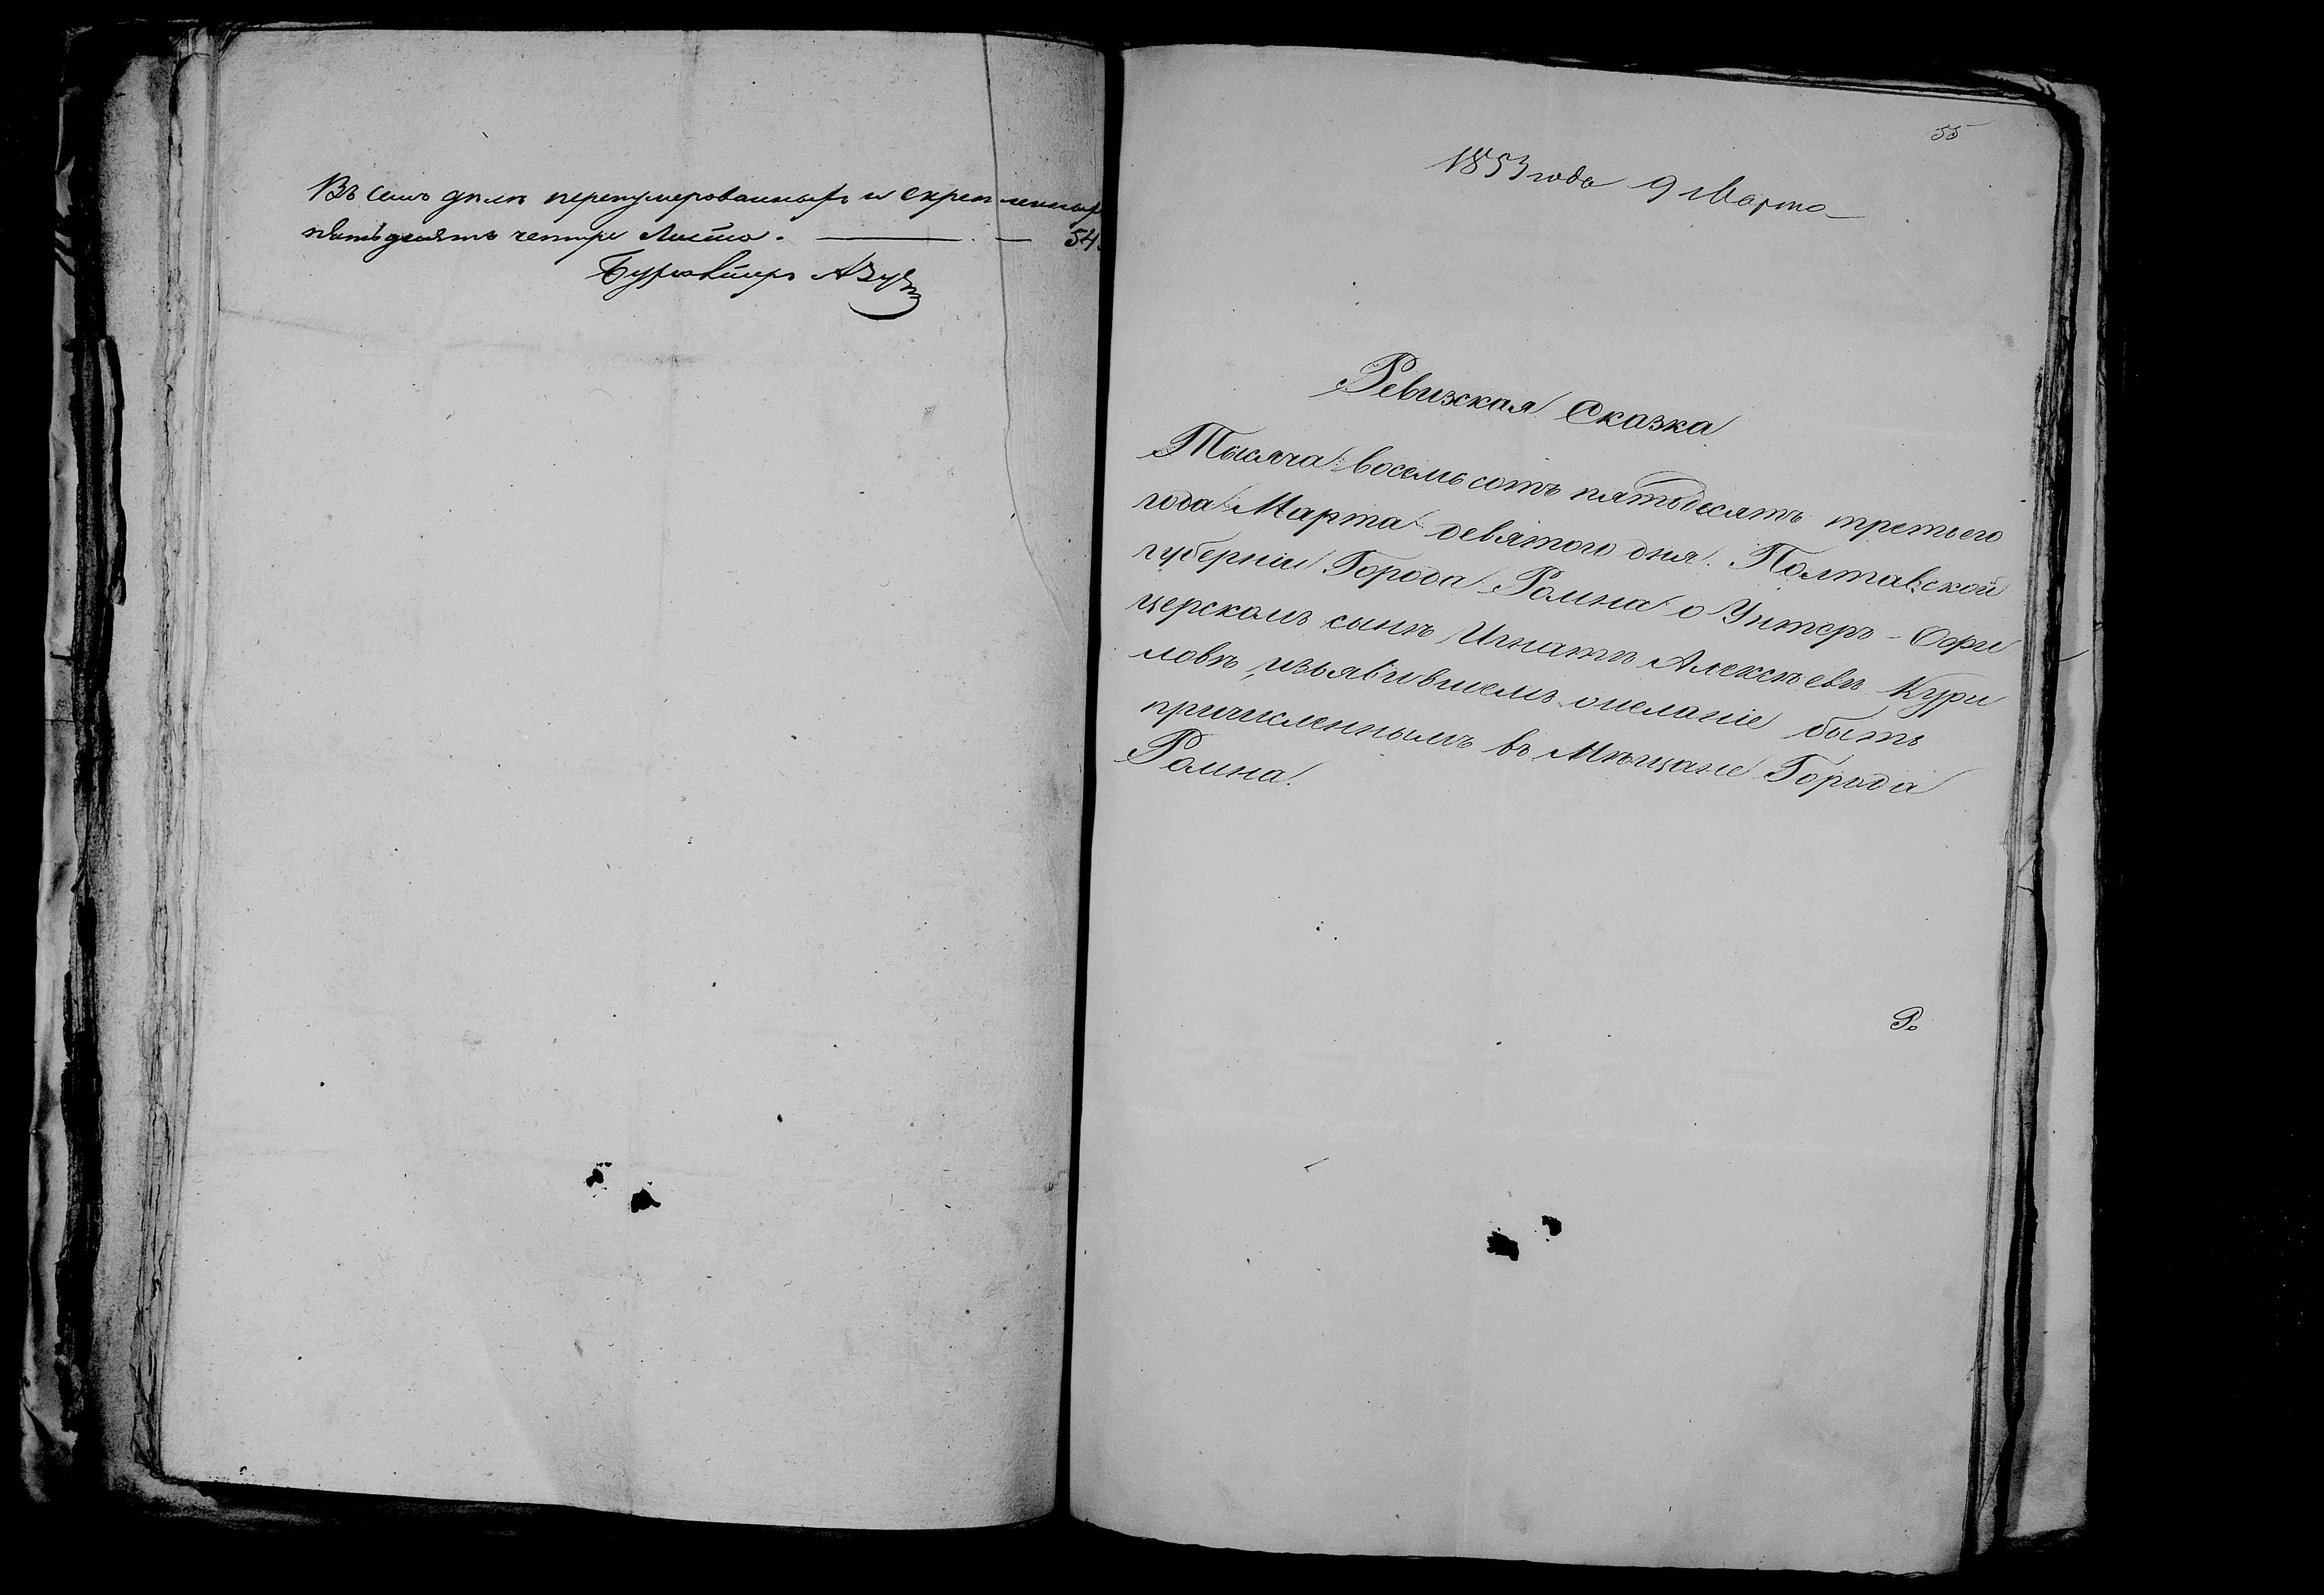 Въ семъ делѣ перенумерованныхъ и скрепленныхъ
пятьдесятъ четыре листа. — — 54
Бургомистръ
55
1853 года 9 Марта
Ревизская Сказка
Тысяча восемьсотъ пятьдесятъ третьего
года Марта девятого дня. Полтавской
губерніи Города Ромна о Унтеръ-Офи
церскомъ сынѣ Игнатѣ Алексѣевѣ Кури
ловѣ, изъявившемъ желаніе быть
причисленнымъ въ Мѣщане Города
Ромна.
Ро